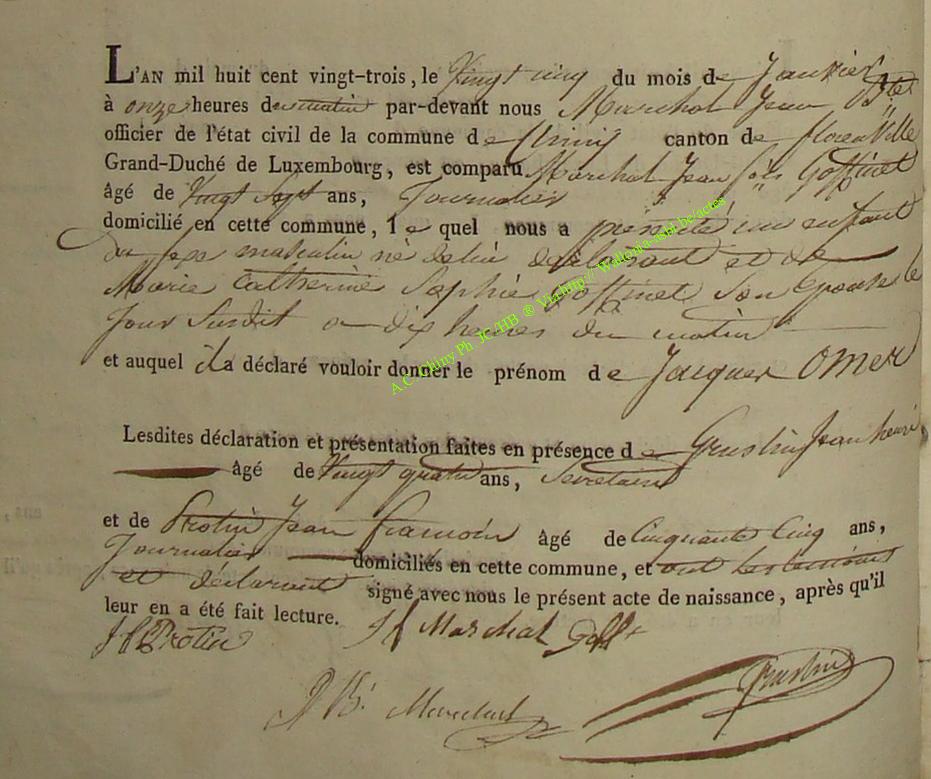 L'AN mil huit cent vingt-trois, le Vingt cinq du mois de Janvier
à onze heures du matin par-devant nous Marchot Jean Bte
officier de l'état civil de la commune de Chiny canton de florenville
Grand-Duché de Luxembourg, est comparu Marchot Jean fçois Goffinet
âgé de Vingt Sept ans, Journalier
domicilié en cette commune, le quel nous a présenté un enfant
du sexe masculin né de lui déclarant et de
Marie Catherine Sophie Goffinet Son Epouse le
Jour Susdit a dix heures du matin
et auquel il a déclaré vouloir donner le prénom de Jacques Omer
Lesdites déclaration et présentation faites en présence de Grustin Jean henri
âgé de Vingt quatre ans, Secretaire
et de Protin Jean francois âgé de Cinquante Cinq ans,
Journalier domiciliés en cette commune, et ont les temoins
et déclarant signé avec nous le présent acte de naissance, après qu'il
leur en a été fait lecture.
J f Protin J f Marchot Goff
J Bt Marchot Grustin
A.C Chiny Ph JC/HB ® Via http:// Wallonia-asbl.be/actes